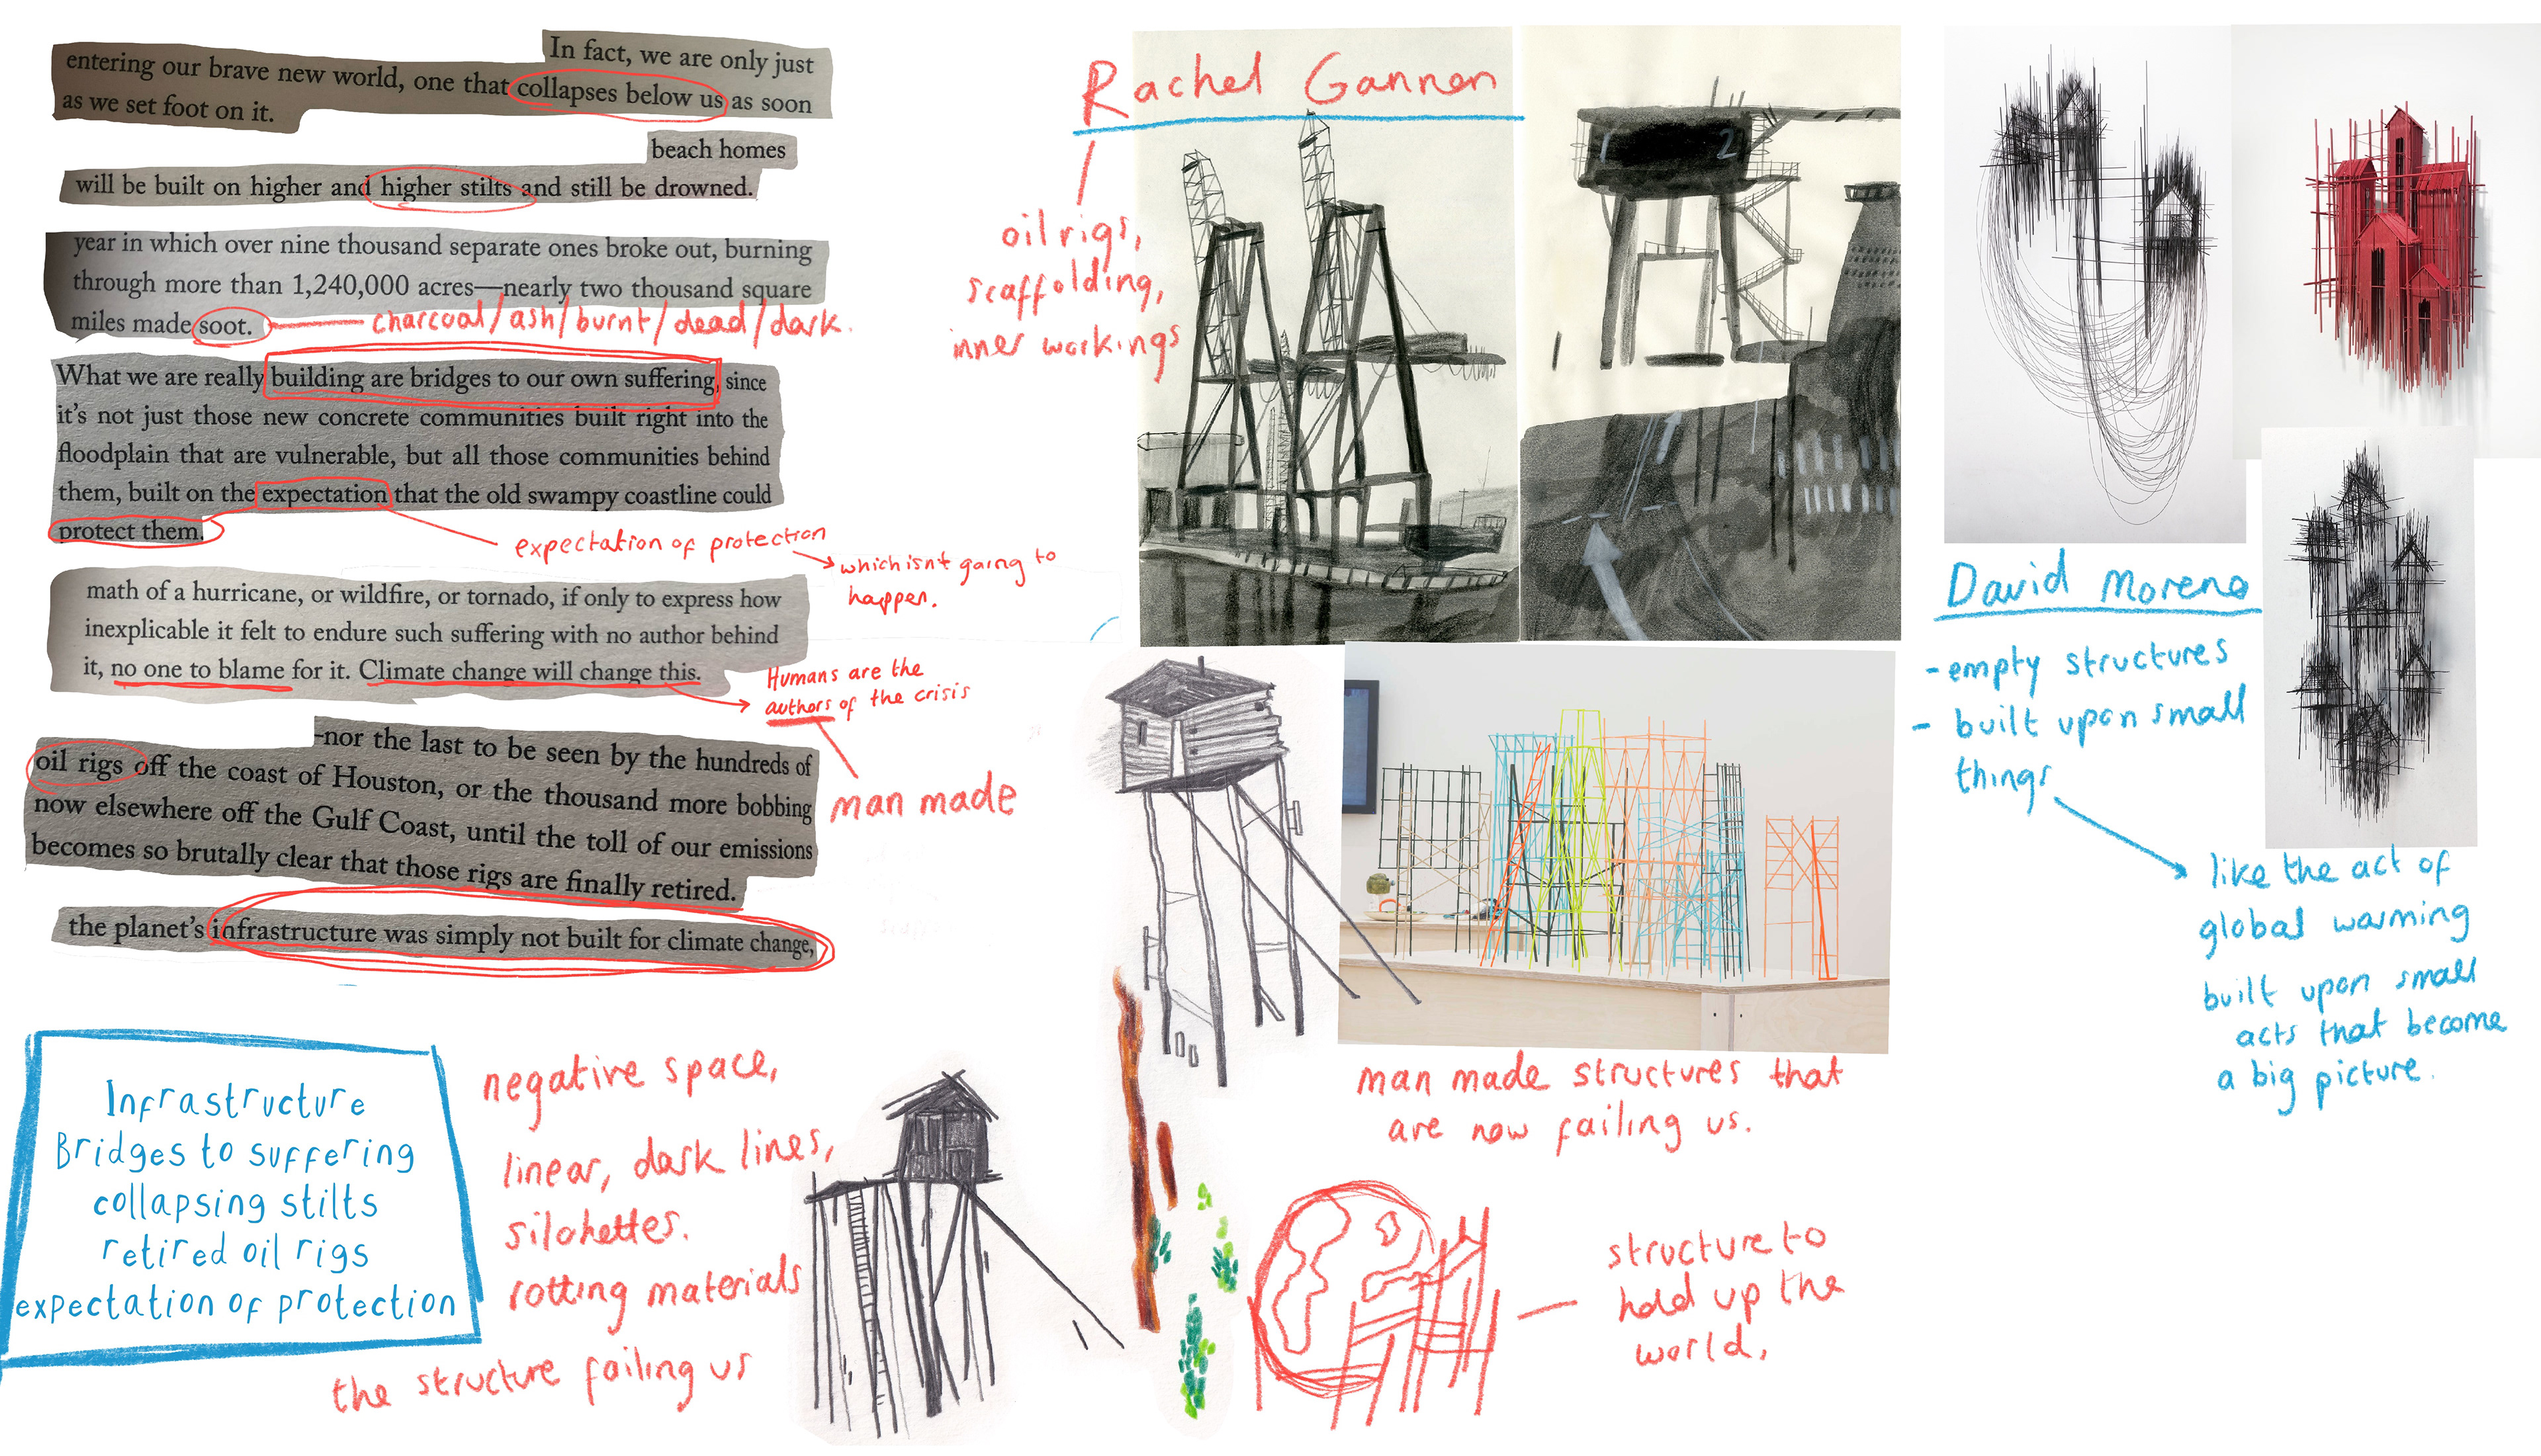 In fact, we are only just
entering our brave new world, one that collapses below us as soon
as we set foot on it.
beach homes
will be built on higher and higher stilts and still be drowned.
year in which over nine thousand separate ones broke out, burning
through more than 1,240,000 acres—nearly two thousand square
miles made soot.
charcoal/ash/burnt/dead/dark.
What we are really building are bridges to our own suffering, since
it's not just those new concrete communities built right into the
floodplain that are vulnerable, but all those communities behind
them, built on the expectation that the old swampy coastline could
protect them.
expectation of protection
which isnt going to
happen.
math of a hurricane, or wildfire, or tornado, if only to express how
inexplicable it felt to endure such suffering with no author behind
it, no one to blame for it. Climate change will change this.
Humans are the
authors of the crisis
man made
-nor the last to be seen by the hundreds of
oil rigs off the coast of Houston, or the thousand more bobbing
now elsewhere off the Gulf Coast, until the toll of our emissions
becomes so brutally clear that those rigs are finally retired.
the planet's infrastructure was simply not built for climate change,
Infrastructure
Bridges to suffering
collapsing stilts
retired oil rigs
expectation of protection
negative space,
linear, dark lines,
silohettes.
rotting materials
the structure failing us
Rachel Gannon
oil rigs,
scaffolding,
inner workings
1 2
man made structures that
are now failing us.
structure to
hold up the
world.
David Moreno
- empty structures
- built upon small
things
like the act of
global warming
built upon small
acts that become
a big picture.